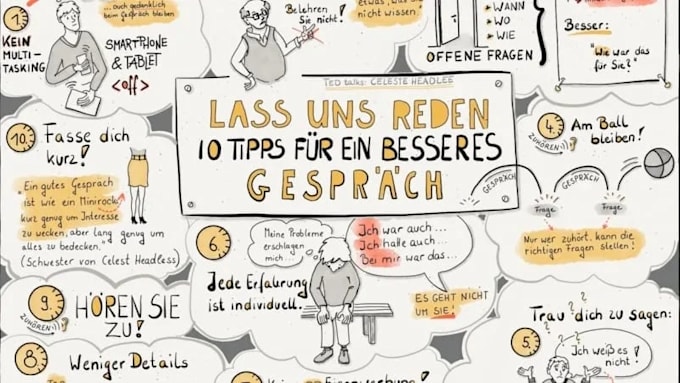 ... auch gedanklich
beim Gespräch bleiben
1.
KEIN
MULTI-
TASKING
SMARTPHONE
& TABLET
<off>
Belehren
Sie nicht!
etwas, was
nicht wissen.
WANN
WO
WIE
OFFENE FRAGEN
Besser:
"Wie war das
für Sie?"
TED talks: CELESTE HEADLEE
LASS UNS REDEN
10 TIPPS FÜR EIN BESSERES
GESPRÄCH
10.
Fasse dich
kurz!
Ein gutes Gespräch
ist wie ein Minirock:
kurz genug um Interesse
zu wecken, aber lang genug um
alles zu bedecken.
(Schwester von Celest Headless)
4.
ZUHÖREN:)
Am Ball
bleiben!
GESPRÄCH
GESPRÄCH
Frage
Frage
Nur wer zuhört, kann die
richtigen Fragen stellen!
6.
Meine Probleme
erschlagen
mich...
Ich war auch...
Ich hatte auch...
Bei mir war das...
Jede Erfahrung
ist individuell.
ES GEHT NICHT
UM SIE!
9.
ZUHÖREN:)
HÖREN SIE
ZU!
Trau dich zu sagen:
5.
Ich weiß es
nicht!
8.
Weniger Details